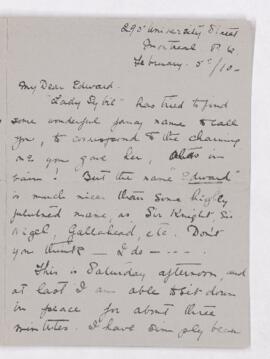 295 University Street
Montreal P.Q.
February 5th/10-
My Dear Edward
"Lady Sybil" has tried to find
some wonderful fancy name to call
you, to correspond to the charming
one you gave her, Alas in
vain! But the name "Edward"
is much nicer than some highly
polished name, as Sir Knight Sir
Nigel, Gallahead, etc. Don't
you think — I do - - - -.
This is Saturday afternoon, and
at last I am able to sit down
in peace for about three
minutes. I have simply been